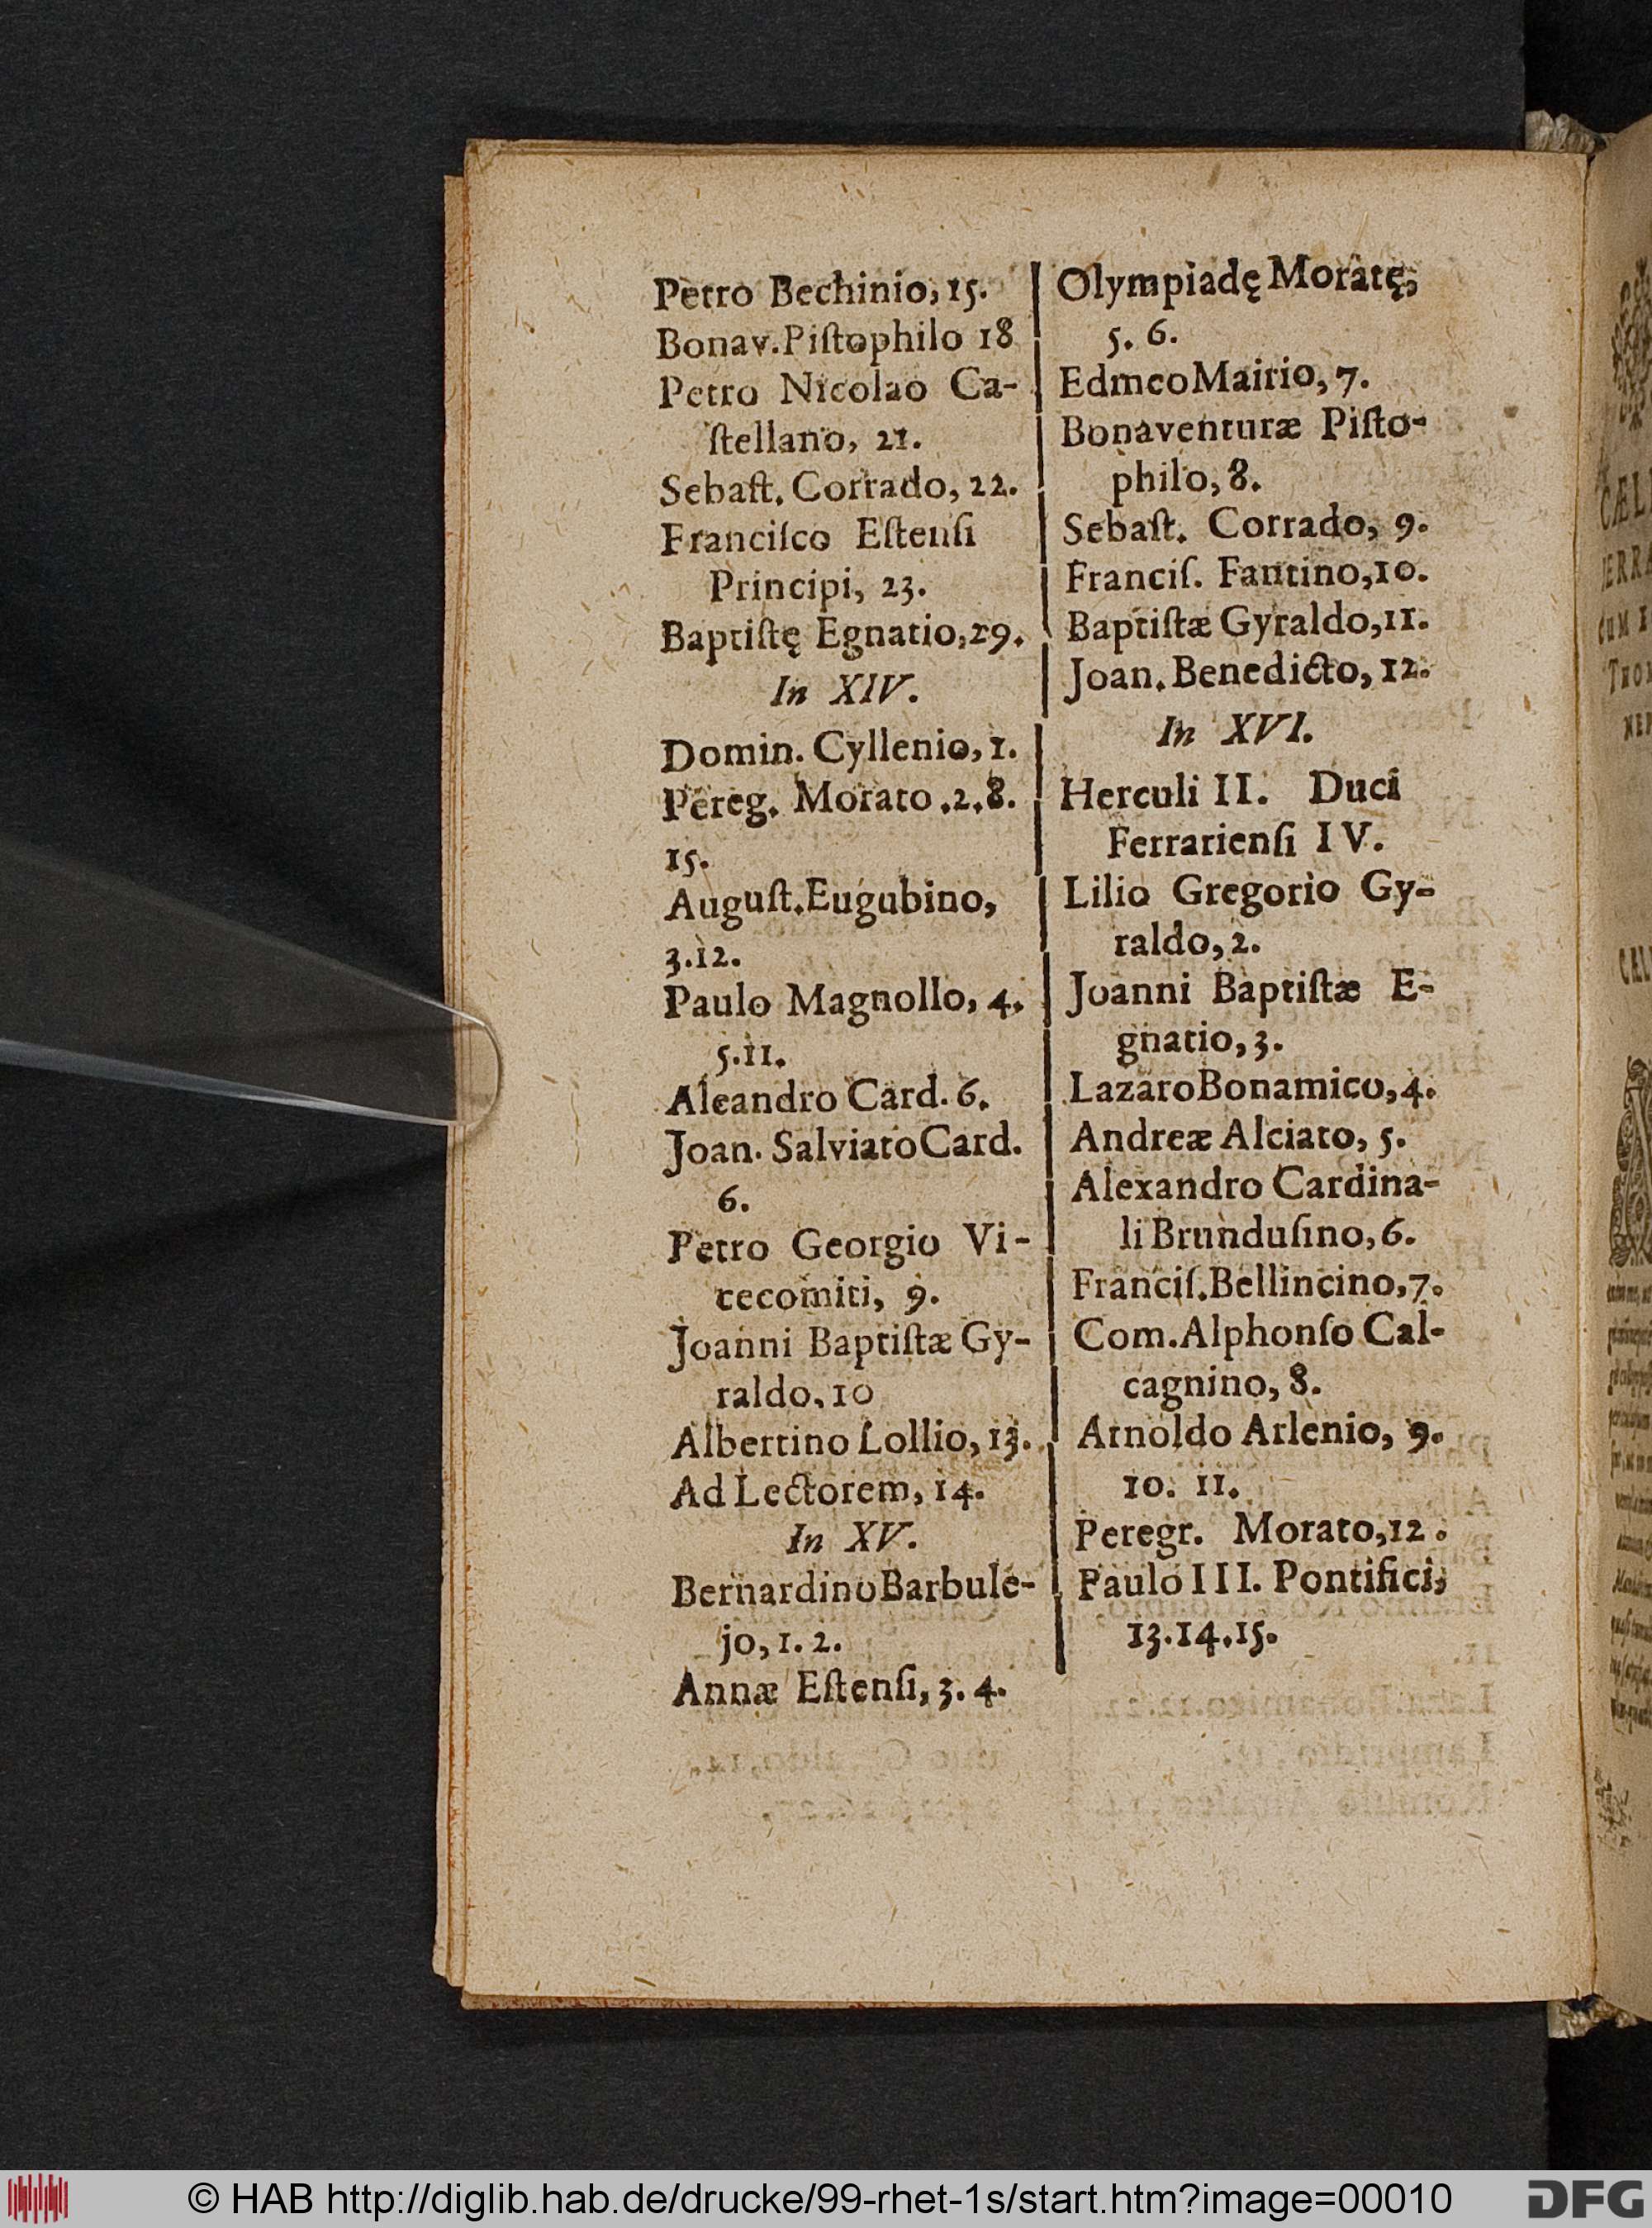 Petro Bechinio, 15.
Bonav. Piſtophilo 18
Petro Nicolao Ca-
ſtellano, 21.
Sebaſt. Corrado, 22.
Franciſco Eſtenſi
Principi, 23.
Baptiſtę Egnatio, 29.
In XIV.
Domin. Cyllenio, 1.
Pereg. Morato .2.8.
15.
Auguſt. Eugubino,
3.12.
Paulo Magnollo, 4.
5.11.
Aleandro Card. 6.
Joan. Salviato Card.
6.
Petro Georgio Vi-
cecomiti, 9.
Joanni Baptiſtæ Gy-
raldo, 10
Albertino Lollio, 13.
Ad Lectorem, 14.
In XV.
Bernardino Barbule-
jo, 1. 2.
Annæ Eſtenſi, 3. 4.
Olympiadę Moratę,
5. 6.
Edmeo Mairio, 7.
Bonaventuræ Piſto-
philo, 8.
Sebaſt. Corrado, 9.
Franciſ. Fantino, 10.
Baptiſtæ Gyraldo, 11.
Joan. Benedicto, 12.
In XVI.
Herculi II. Duci
Ferrarienſi IV.
Lilio Gregorio Gy-
raldo, 2.
Joanni Baptiſtæ E-
gnatio, 3.
Lazaro Bonamico, 4.
Andreæ Alciato, 5.
Alexandro Cardina-
li Brunduſino, 6.
Franciſ. Bellincino, 7.
Com. Alphonſo Cal-
cagnino, 8.
Arnoldo Arlenio, 9.
10. 11.
Peregr. Morato, 12.
Paulo III. Pontifici,
13.14.15.
© HAB http://diglib.hab.de/drucke/99-rhet-1s/start.htm?image=00010
DFG